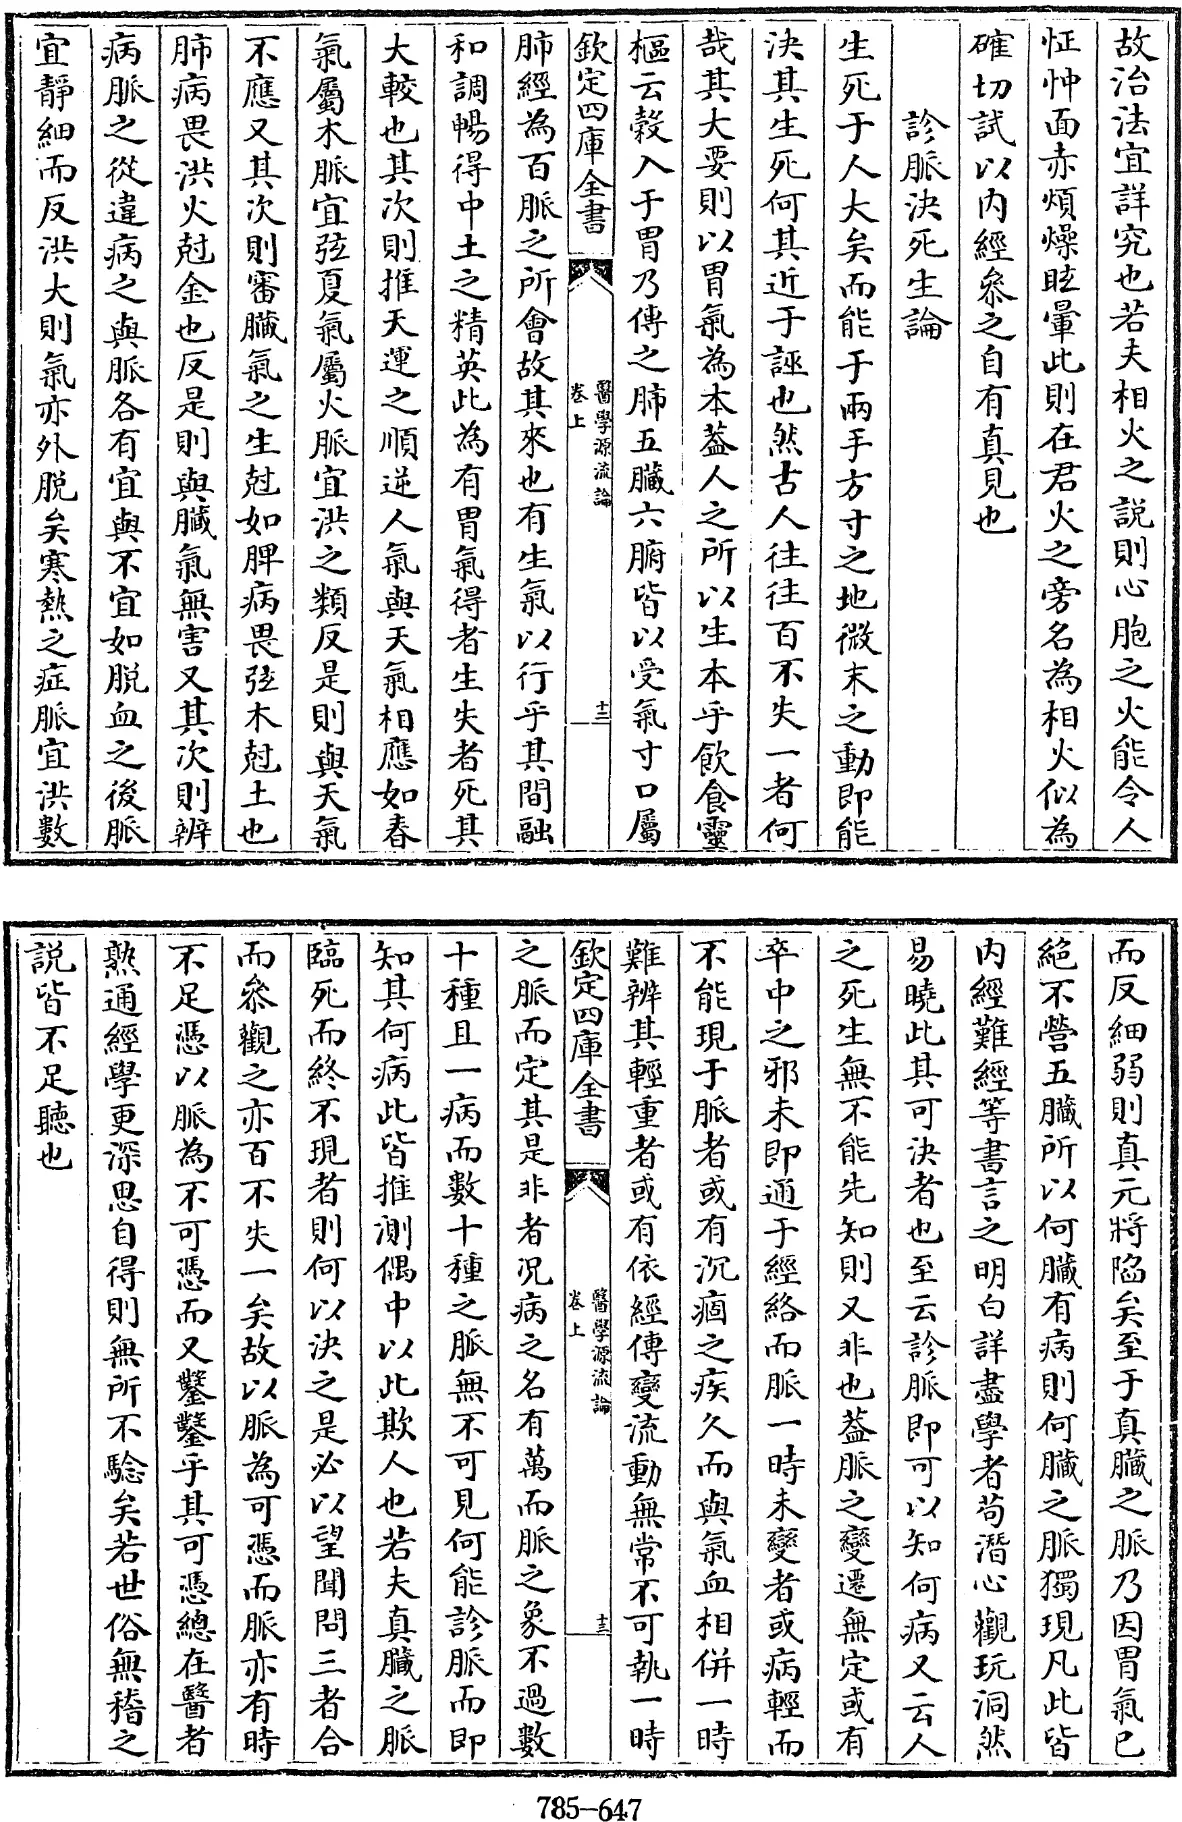 故治法宜詳究也若夫相火之説則心胞之火能令人
怔忡面赤煩燥眩暈此則在君火之旁名為相火似為
確切試以内經叅之自有真見也
診脈決死生論
生死于人大矣而能于兩手方寸之地微末之動即能
決其生死何其近于誣也然古人往往百不失一者何
哉其大要則以胃氣為本葢人之所以生本乎飲食靈
樞云榖入于胃乃傳之肺五臟六腑皆以受氣寸口屬
欽定四庫全書
醫學源流論
卷上
十三
肺經為百脈之所會故其來也有生氣以行乎其間融
和調暢得中土之精英此為有胃氣得者生失者死其
大較也其次則推天運之順逆人氣與天氣相應如春
氣屬木脈宜弦夏氣屬火脈宜洪之類反是則與天氣
不應又其次則審臟氣之生尅如脾病畏弦木尅土也
肺病畏洪火尅金也反是則與臟氣無害又其次則辨
病脈之從違病之與脈各有宜與不宜如脱血之後脈
宜靜細而反洪大則氣亦外脱矣寒熱之症脈宜洪數
而反細弱則真元將陷矣至于真臟之脈乃因胃氣已
絶不營五臟所以何臟有病則何臟之脈獨現凡此皆
内經難經等書言之明白詳盡學者苟潛心觀玩洞然
易曉此其可決者也至云診脈即可以知何病又云人
之死生無不能先知則又非也葢脈之變遷無定或有
卒中之邪未即通于經絡而脈一時未變者或病輕而
不能現于脈者或有沉痼之疾久而與氣血相併一時
難辨其輕重者或有依經傳變流動無常不可執一時
欽定四庫全書
醫學源流論
卷上
十三
之脈而定其是非者况病之名有萬而脈之象不過數
十種且一病而數十種之脈無不可見何能診脈而即
知其何病此皆推測偶中以此欺人也若夫真臟之脈
臨死而終不現者則何以決之是必以望聞問三者合
而叅觀之亦百不失一矣故以脈為可憑而脈亦有時
不足憑以脈為不可憑而又鑿鑿乎其可憑總在醫者
熟通經學更深思自得則無所不驗矣若世俗無稽之
説皆不足聽也
785-647